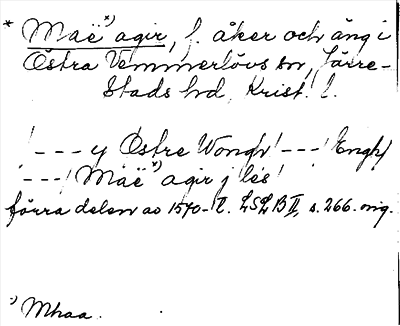 * Maë¹⁾ agir, f. åker och äng i
Östra Vemmerlövs sn, Järre-
stads hd, Krist. l.
! - - - y Östre Wongh! - - -! Engh/
! - - -! Maë¹⁾ agir j lës!
förra delen av 1570-t. LSLB II, s. 266. orig.
¹⁾ Mhaa.